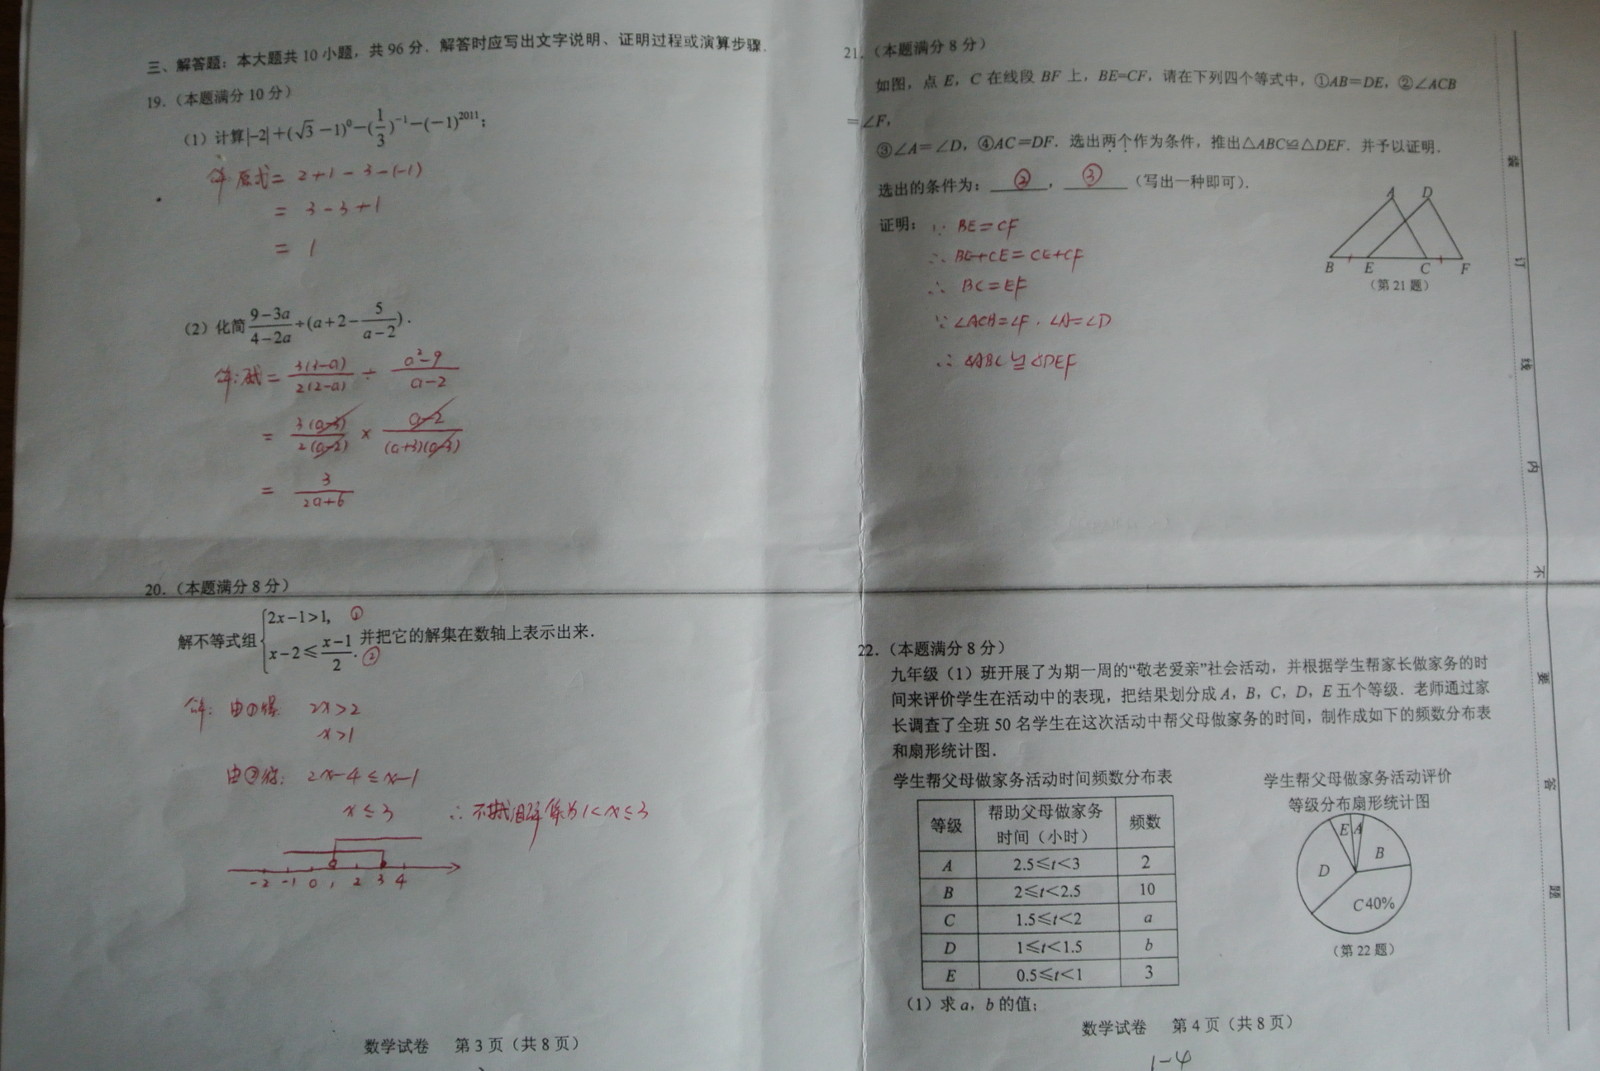 三、解答题：本大题共 10 小题，共 96 分．解答时应写出文字说明、证明过程或演算步骤．
19．（本题满分 10 分）
（1）计算|−2|+(√3−1)⁰−(1/3)⁻¹−(−1)²⁰¹¹；
解 原式= 2+1−3−(−1)
= 3−3+1
= 1
（2）化简 (9−3a)/(4−2a)÷(a+2−5/(a−2))．
解:原式= 3(3−a)/2(2−a) ÷ (a²−9)/(a−2)
= 3(a−3)/2(a−2) × (a−2)/(a+3)(a−3)
= 3/(2a+6)
20．（本题满分 8 分）
解不等式组 {2x−1>1, ①
x−2≤(x−1)/2. ② 并把它的解集在数轴上表示出来．
解: 由①得: 2x>2
x>1
由②得: 2x−4≤x−1
x≤3 ∴不等式组解集为1<x≤3
-2 -1 0 1 2 3 4
数学试卷 第 3 页（共 8 页）
21．（本题满分 8 分）
如图，点 E，C 在线段 BF 上，BE=CF，请在下列四个等式中，①AB＝DE，②∠ACB
＝∠F，
③∠A＝∠D，④AC＝DF．选出两个作为条件，推出△ABC≌△DEF．并予以证明．
选出的条件为：②，③（写出一种即可）．
证明： ∵ BE=CF
∴ BE+CE=CE+CF
∴ BC=EF
∵ ∠ACB=∠F．∠A=∠D
∴ △ABC≌△DEF
A D
B E C F
（第 21 题）
22．（本题满分 8 分）
九年级（1）班开展了为期一周的“敬老爱亲”社会活动，并根据学生帮家长做家务的时
间来评价学生在活动中的表现，把结果划分成 A，B，C，D，E 五个等级．老师通过家
长调查了全班 50 名学生在这次活动中帮父母做家务的时间，制作成如下的频数分布表
和扇形统计图．
学生帮父母做家务活动时间频数分布表
等级 帮助父母做家务时间（小时） 频数
A 2.5≤t<3 2
B 2≤t<2.5 10
C 1.5≤t<2 a
D 1≤t<1.5 b
E 0.5≤t<1 3
学生帮父母做家务活动评价
等级分布扇形统计图
E A
B
D
C40%
（第 22 题）
（1）求 a，b 的值；
数学试卷 第 4 页（共 8 页）
1-4
装 订 线 内 不 要 答 题